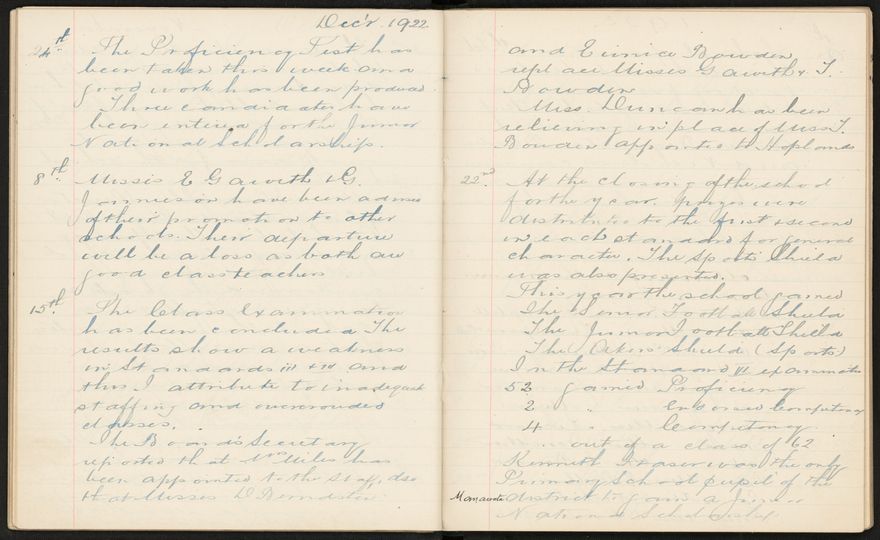 Dec'r. 1922
24th The Proficiency Test has
been taken this week and
good work has been produced.
Three candidates have
been entered for the Junior
National Scholarship.
8th Misses E Gawith & G.
Jamieson have been advised
of their promotion to other
schools. Their departure
will be a loss as both are
good class teachers
15th. The Class Examination
has been concluded. The
results show a weakness
in Standards iii & iv and
this I attribute to inadequate
staffing and overcrowded
classes.
The Board's Secretary
reported that Mrs Miles has
been appointed to the staff, also
that Misses D
and Eunice Bowden
replace Misses Gawith & T.
Bowden
Miss. Duncan has been
relieving in place of Miss T.
Bowden appointed to Hoplands
22nd. At the closing of the school
for the year. prizes were
distributed to the first & second
in each standard for general
character. The Sports Shield
was also presented.
This year the school gained
The Senior Football Shield
The Junior Football Shield
The Shield (Sports)
In the Standard VI examination
52 gained Proficiency
2 " Endorsed Competency
4 " Competency.
out of a class of 62
Kenneth Fraser was the only
Primary School pupil of the
Manawatu district to gain a Junior
National Scholarship